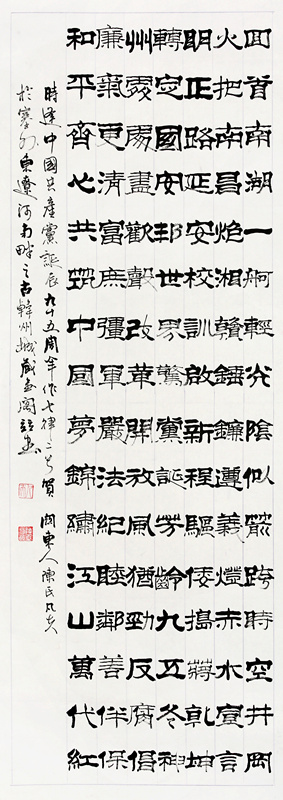 回首南湖一舸輕光陰似箭跨時空井岡
火把南昌炮湘贛錘鐮遵義燈赤水言
明正路延安校訓啟新程驅倭搗蔣乾坤
轉定國安邦世界驚黨誕芳齡九五冬神
州處處盡歡聲改革開放風猶勁反腐倡
廉氣更清富庶強軍嚴法紀睦鄰善伴保
和平齊心共筑中國夢錦繡江山萬代紅
時逢中國共產黨誕辰九十五周年作七律二首賀 関東人陳氏凡夫
於塞外東遼河南畔之古韓州城藏壺閣